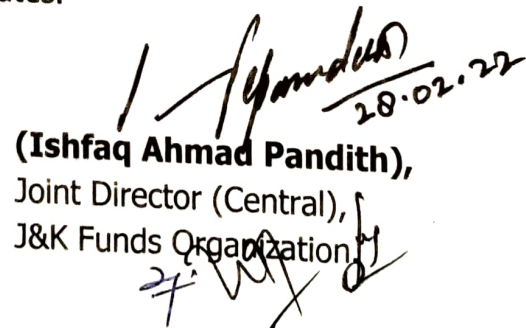 28.02.22
(Ishfaq Ahmad Pandith),
Joint Director (Central),
J&K Funds Organization